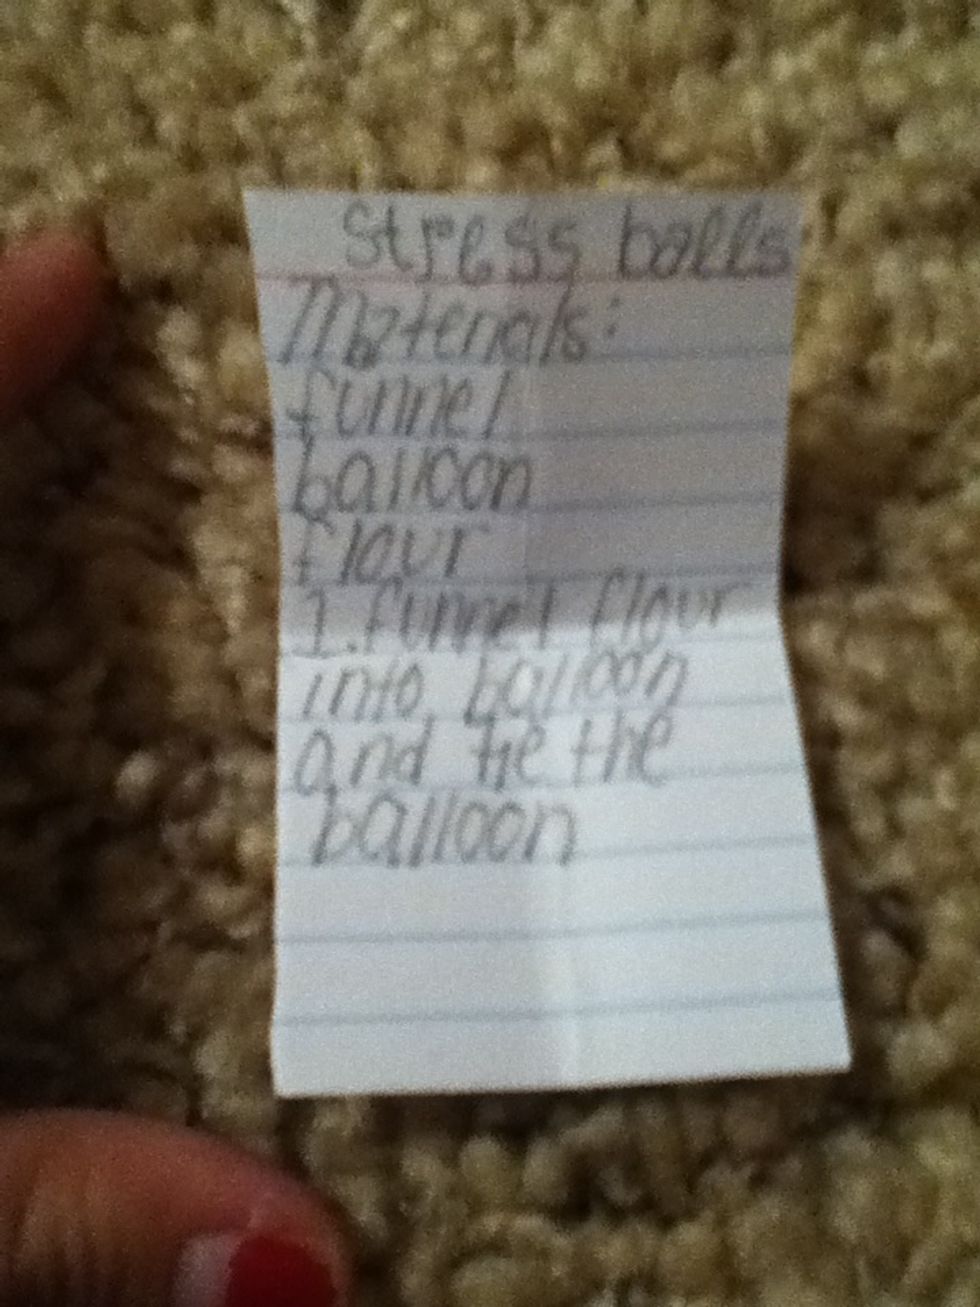 Stress balls
Materials:
funnel
balloon
flour
1. funnel flour
into balloon
and tie the
balloon